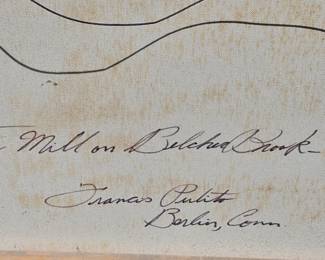 Mill on Belcher Brook -
Francis
Berlin, Conn